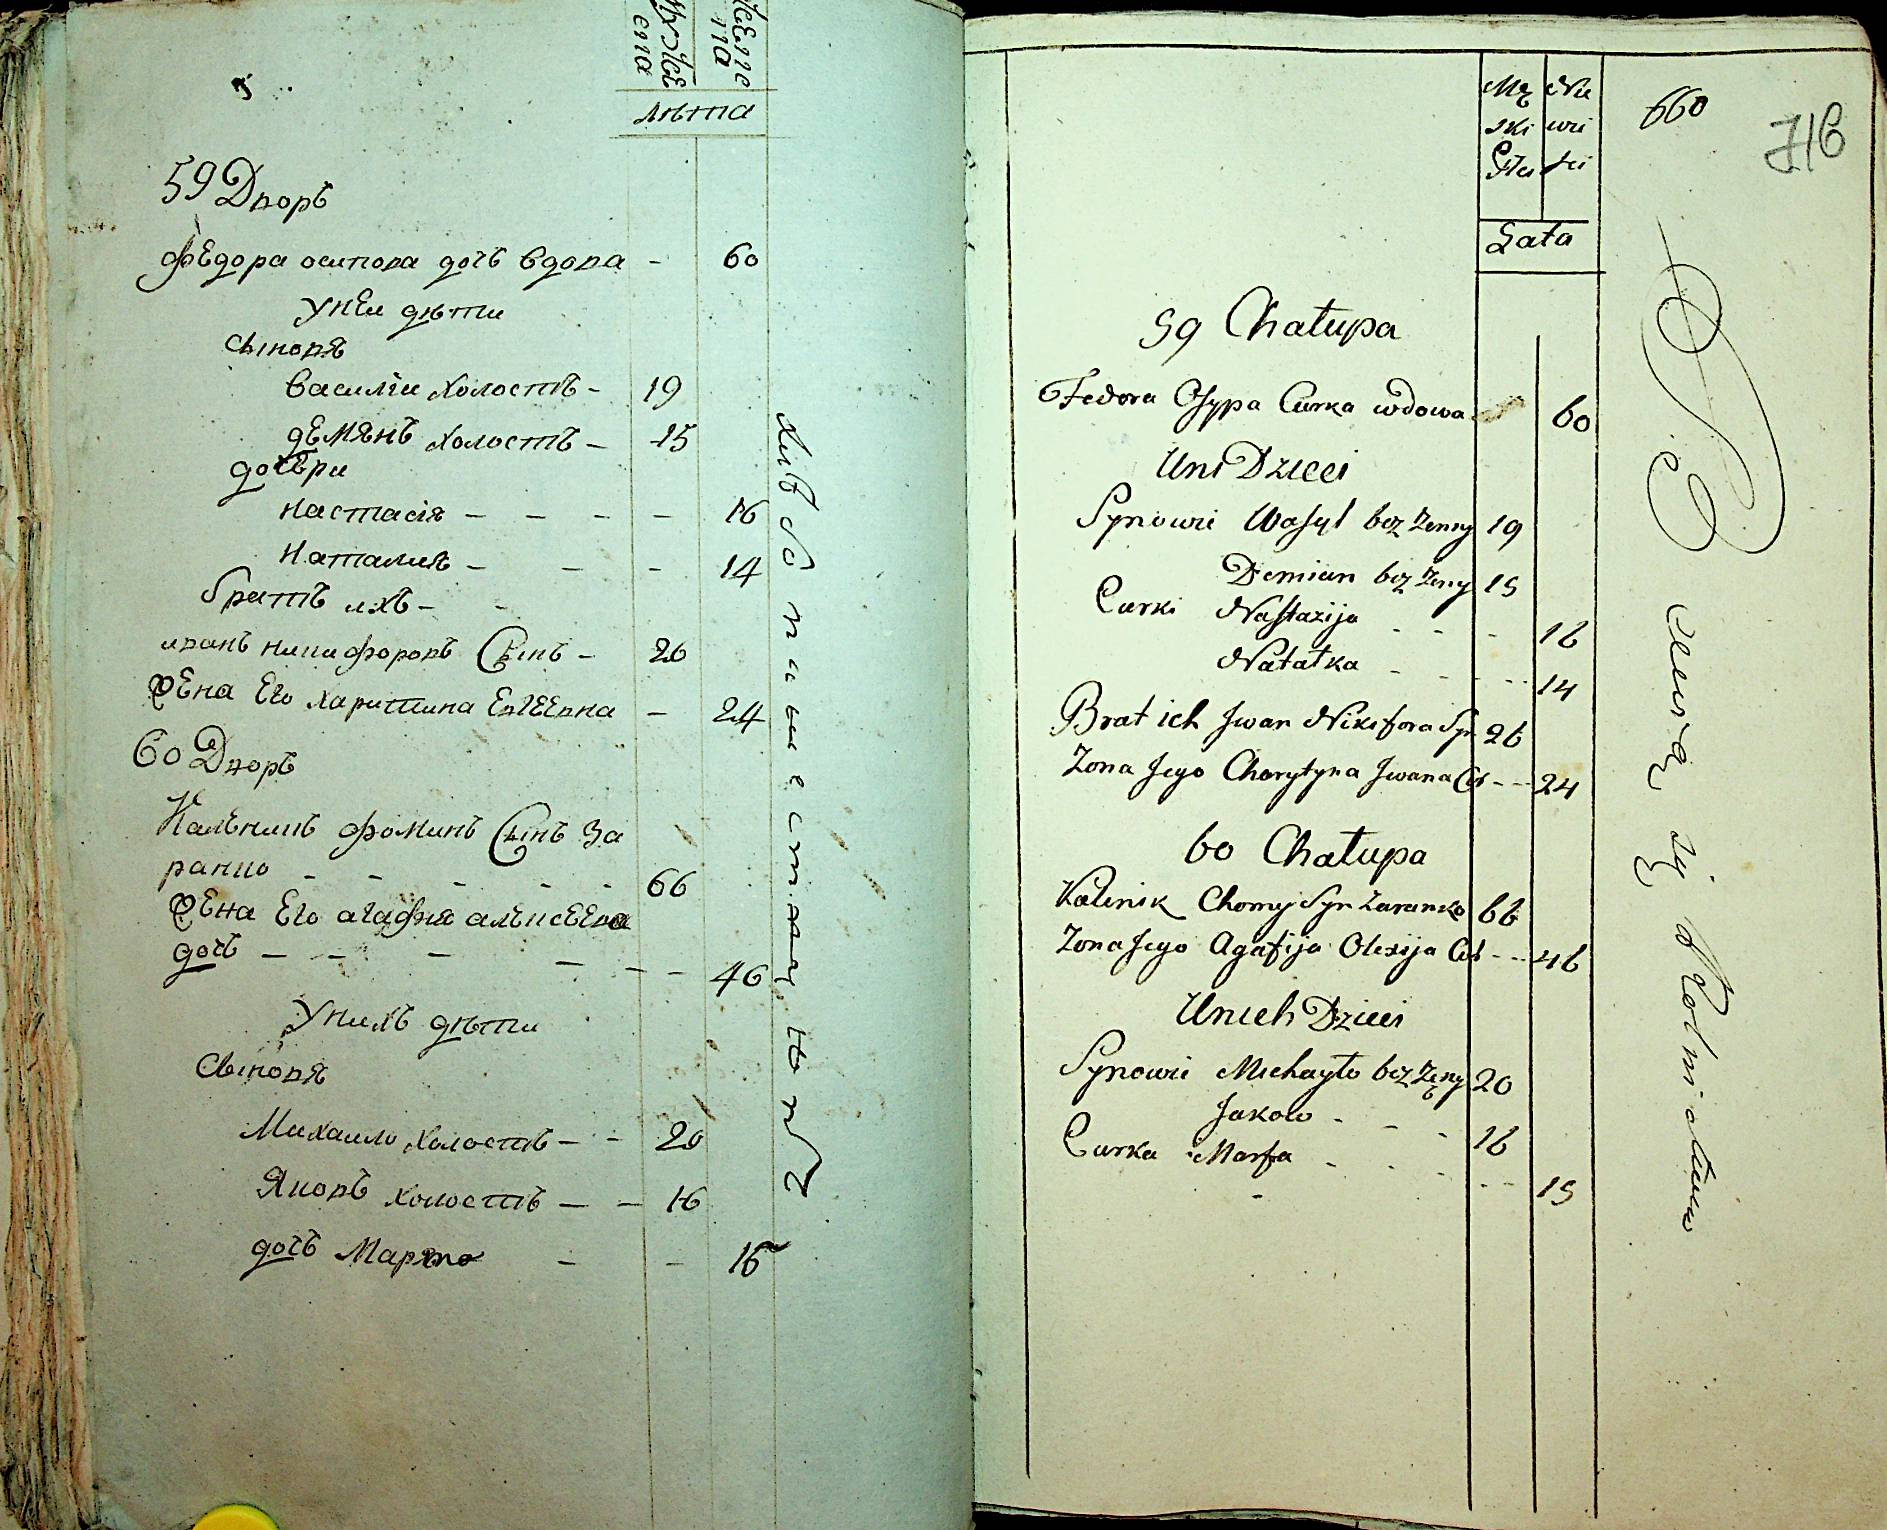 мужеска
женска
лѣта
59 Дворъ
Федора осипова дочъ вдова - 60
У неи дѣти
Сыновя
Василіи холостъ - 19
демянъ холостъ - 15
дочери
Настасія - - - - 16
Наталия - - - 14
братъ ихъ - -
иванъ никифоровъ Сынъ - 26
жена Его харитина
- 24
60 Дворъ
Калѣникъ фоминъ Сынъ За
ранко - - - - - 66
жена Его агафия алексеева
дочъ - - - - - - 46
У нихъ дѣти
Сыновя
Михаило холостъ - - 20
Яковъ холостъ - - 16
дочъ Марфа - - 15
Mę Nie
ski wie
Płci ści
Lata
660
716
59 Chałupa
Fedora Osypa Curka wdowa 60
Uni Dzieci
Synowie Wasyl bez Zenny 19
Demian bez Zeny 15
Curki Nastazija - - - 16
Natałka - - - - 14
Brat ich Jwan Nikifora Syn 26
Zona Jego Charytyna Jwana Cór - - 24
60 Chałupa
Kalinik Chomy Syn Zaranko 66
Zona Jego Agafija Olexija Cór - - 46
Unich Dzieci
Synowie Michayło bez Zeny 20
Jakow - - - 16
Curka Marfa - - - - - 15